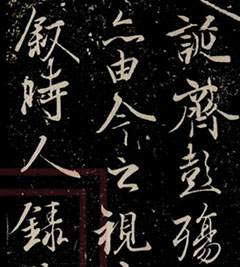 誕齊彭殤
亦由今之視
叙時人錄